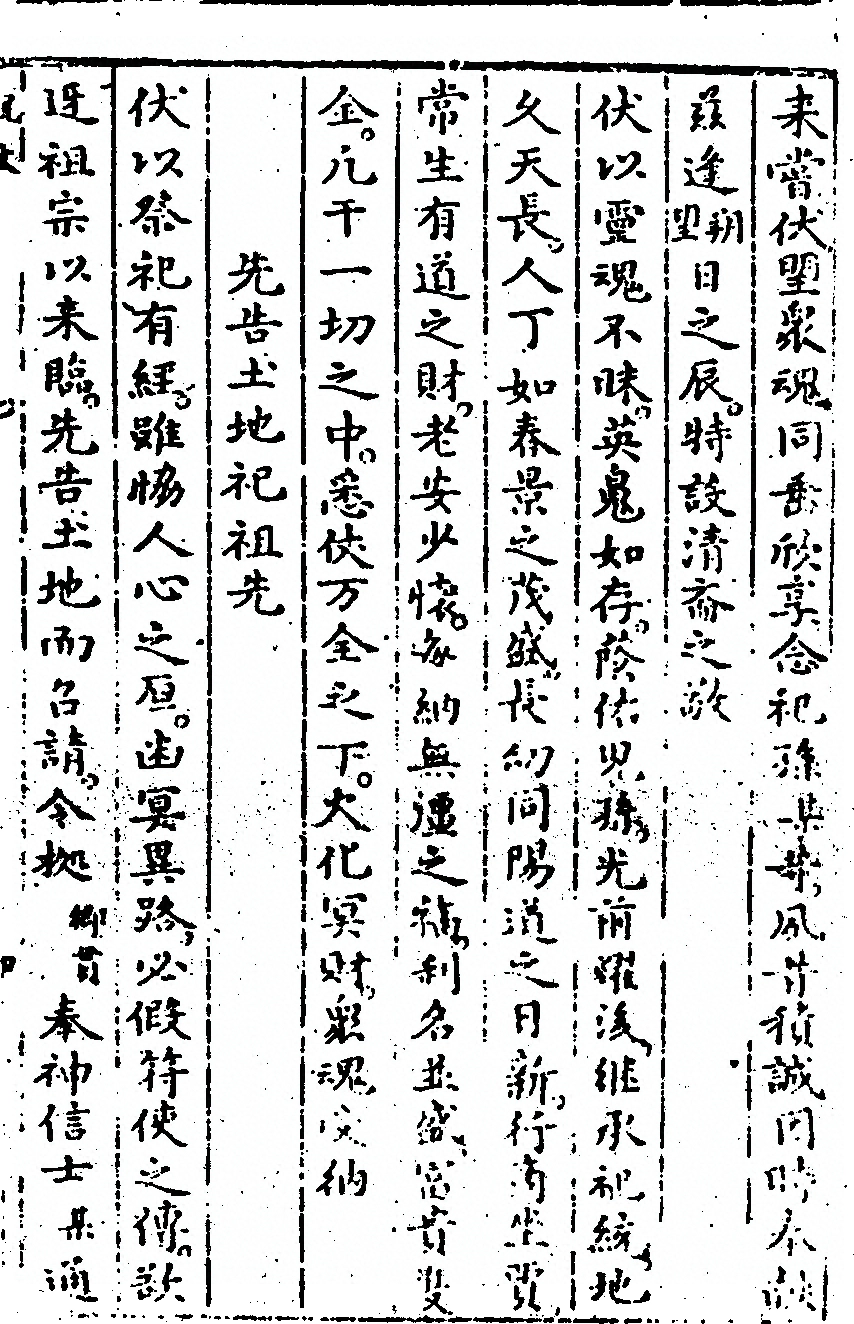 来當伏望眾魂同垂欣享念祀孫某某夙昔積誠因時奉献
茲逢朔望日之辰。特設清斎之敬
伏以靈魂不昧。英鬼如存。蔭佑兒孫。光前耀後。継承祀統。地
久天長。人丁如春景之茂盛。長幼同陽道之日新。行商坐賈
常生有道之財。老安少懐。家納無彊之福。利名並盛。富貴雙
全。凢干一切之中。悉使万全之下。火化冥财。眾魂交納
先告土地祀祖先
伏以祭祀有經。雖恊人心之原。幽冥異路。必假符使之傳。欲
迓祖宗以来臨。先告土地而召請。今拠 鄉貫 奉神信士 某 通